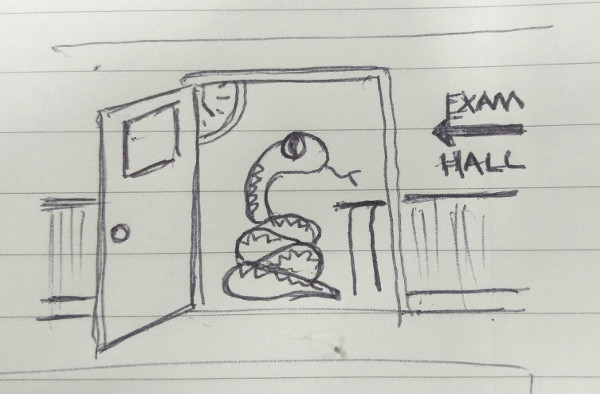 EXAM
HALL